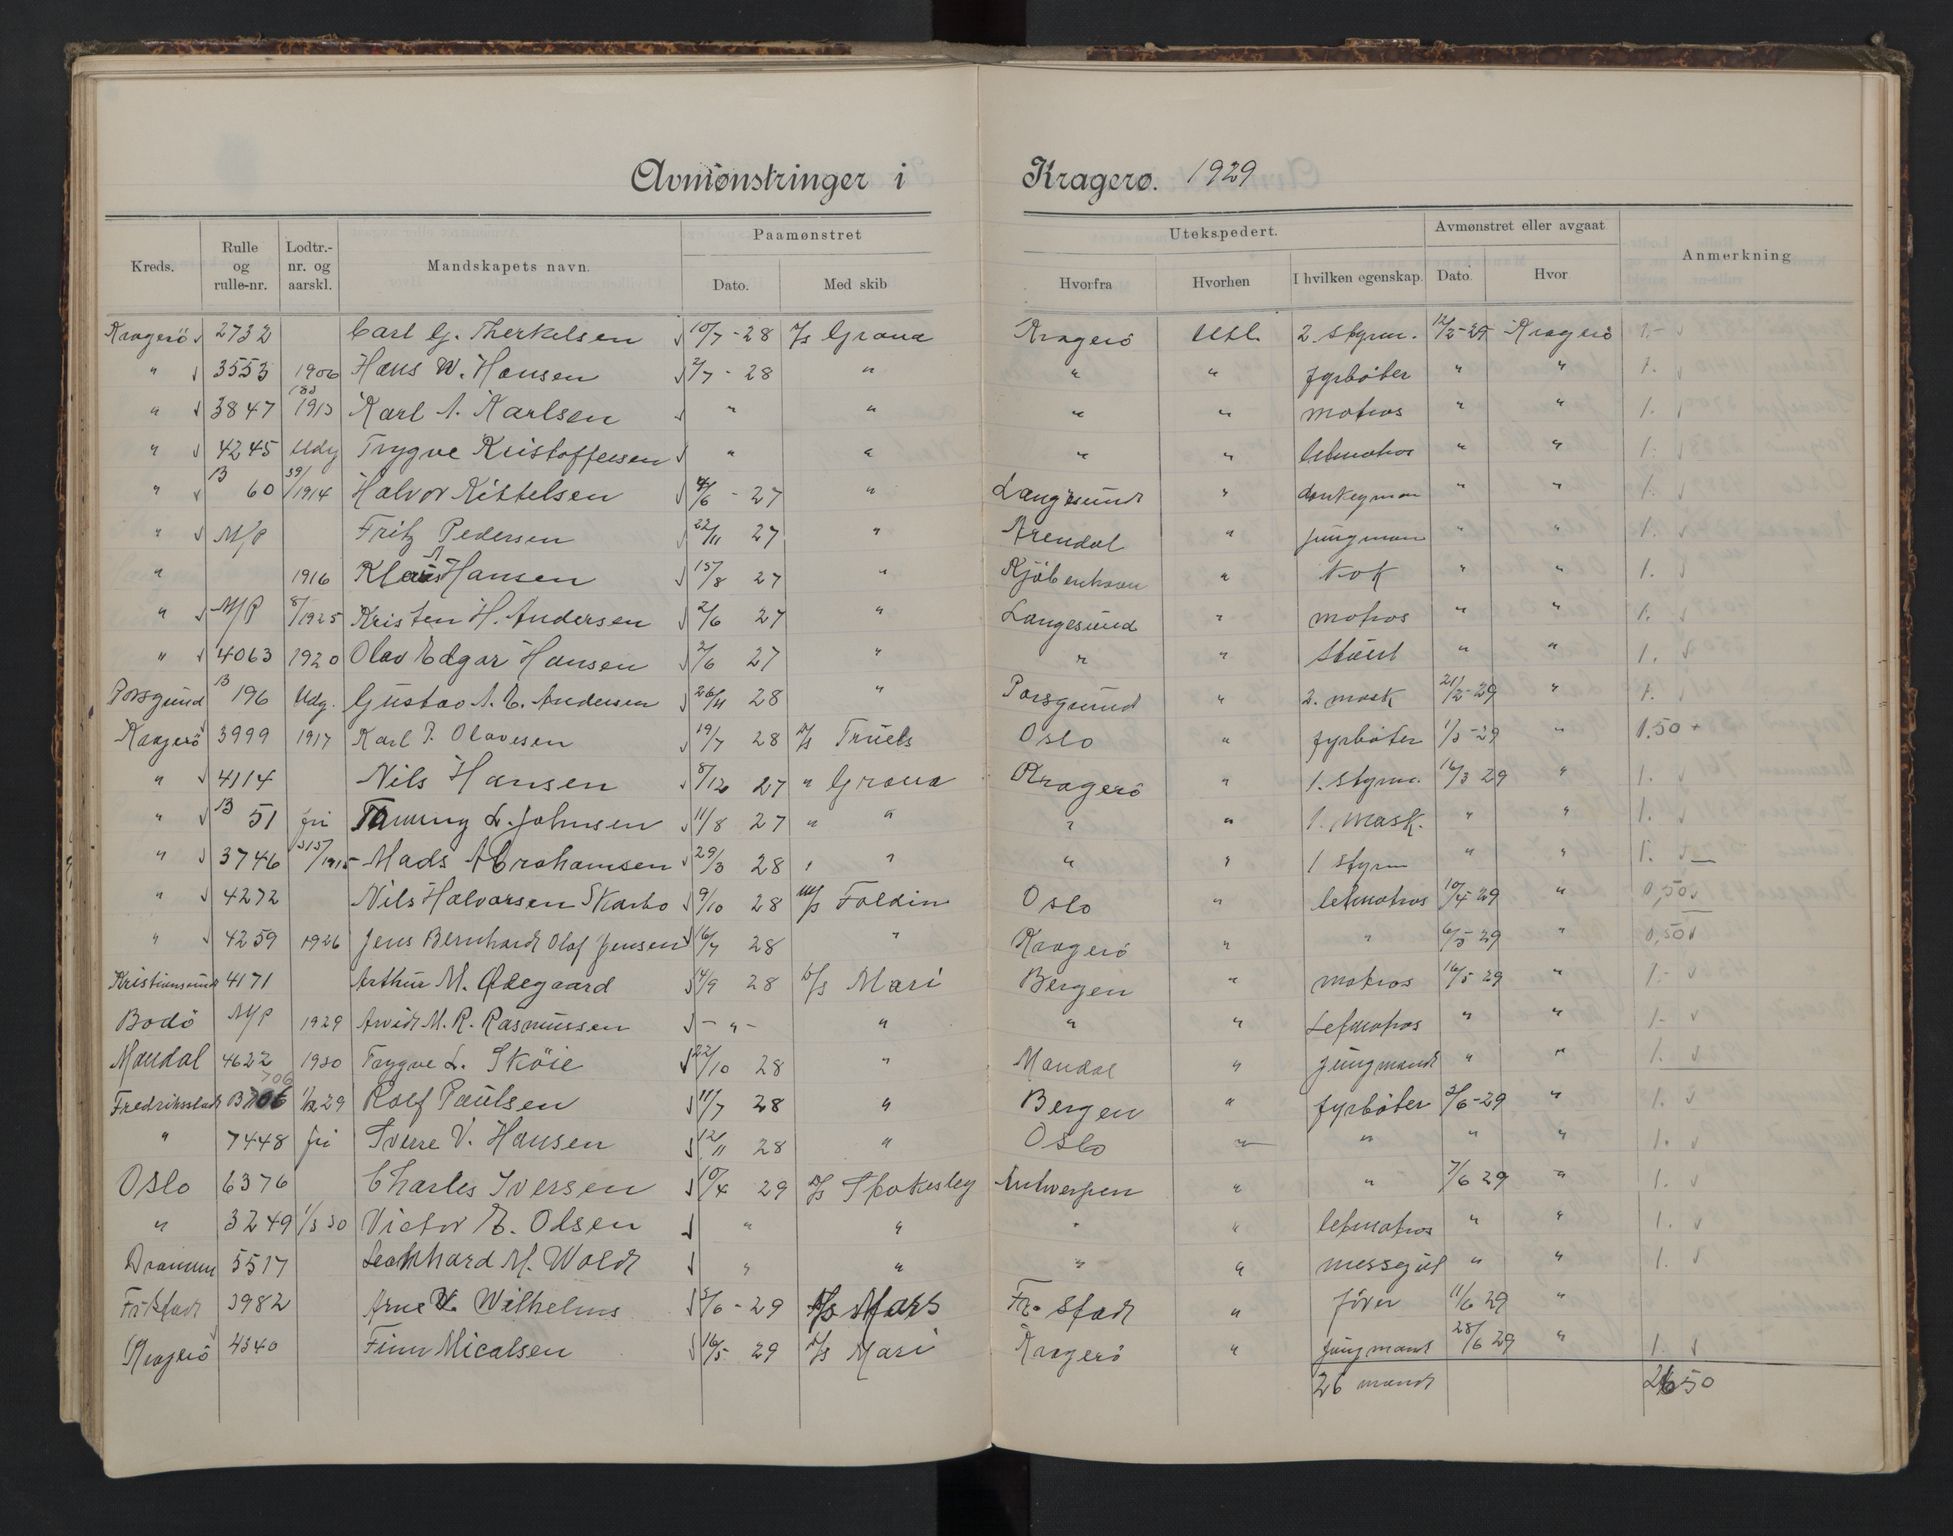 Avmønstringer i Kragerø. 1929
Kreds. Rulle og rulle-nr. Lodtr.-nr. og aarskl. Mandskapets navn. Paamønstret Dato. Med skib Utekspedert. Hvorfra Hvorhen I hvilken egenskap. Avmønstret eller avgaat Dato. Hvor Anmerkning
Kragerö 2732 Carl G. Therkelsen 10/7 - 28 D/S Grana Kragerö Utl. 2. styrm. 12/2-29 Kragerö 1.-
" 3553 1906 Hans W. Hansen 2/7 - 28 " " " fyrböter " " 1.
" 3847 1913 Karl A. Karlsen " " " " matros " " 1.
" 4245 Udg Trygve Kristoffersen " " " " letmatros " " 1.
" B 60 39/1914 Halvor Kittelsen 4/6 - 27 " Langesund " donkeyman " " 1.
" M/P Fritz Pedersen 22/11 27 " Arendal " jungman " " 1.
" 1916 Klaus A Hansen 15/8 27 " Kjöbenhavn " kok " " 1.
" M/P 8/1925 Kristen H. Andersen 2/6 27 " Langesund " matros " " 1.
" 4063 1920 Olav Edgar Hansen 2/6 27 " " " Stuert " " 1.
Porsgrund B 196 Udg. Gustav A. E. Andersen 26/11 28 " Porsgrund " 2. mask 21/2-29 " 1.
Kragerö 3999 1917 Karl J. Olavesen 19/7 28 D/S Truels Oslo " fyrböter 1/3-29 " 1.50 +
" 4114 Nils Hansen 8/12 27 " Grana Kragerö " 1. styrm. 16/3 29 " 1.
" B 51 fri L. Johnsen 11/8 27 " " " " 1. mask. " " 1.
" 3746 515/1915 Mads Abrahamsen 29/3 28 " " " " 1 styrm " " 1.
" 4272 Nils Halvorsen Skarbo 9/10 28 M/S Foldin Oslo " letmatros 10/4-29 " 0,50
" 4259 1926 Jens Bernhard Olaf Jensen 16/7 28 " Kragerö " " 6/5-29 " 0,50
Kristiansund 4171 Arthur M. Ødegaard 4/9 28 D/S Mari Bergen " matros 16/5-29 " 1.-
Bodö M/P 1929 Arvid M. R. Rasmussen - " - " " " Letmatros " " 1.-
Mandal 4622 1930 Trygve L. Sköie 22/10 28 " Mandal " jungmand " " 1.
706
Fredriksstad B 706 1/12 29 Rolf Paulsen 11/7 28 " Bergen " fyrböter 3/6-29 " 1.
" 7448 fri Sverre V. Hansen 12/11 28 " Oslo " " " " 1.
Oslo 6376 Charles Iversen 10/4 29 D/S Stokesley Antwerpen " " 7/6 29 " 1.
" 3249 1/3 30 Victor E. Olsen " " " " letmatros " " 1.
Drammen 5517 Leonhard M. Wold " " " " messegut " " 1.
Fr.stad 3982 Arne V. Wilhelms 3/6 - 29 Mars Fr. stad " förer 11/6 29 "
Kragerö 4340 Finn Micalsen 16/5 29 D/S Mari Kragerö " jungmand 28/6 29 " 1.
26 mand 26 50